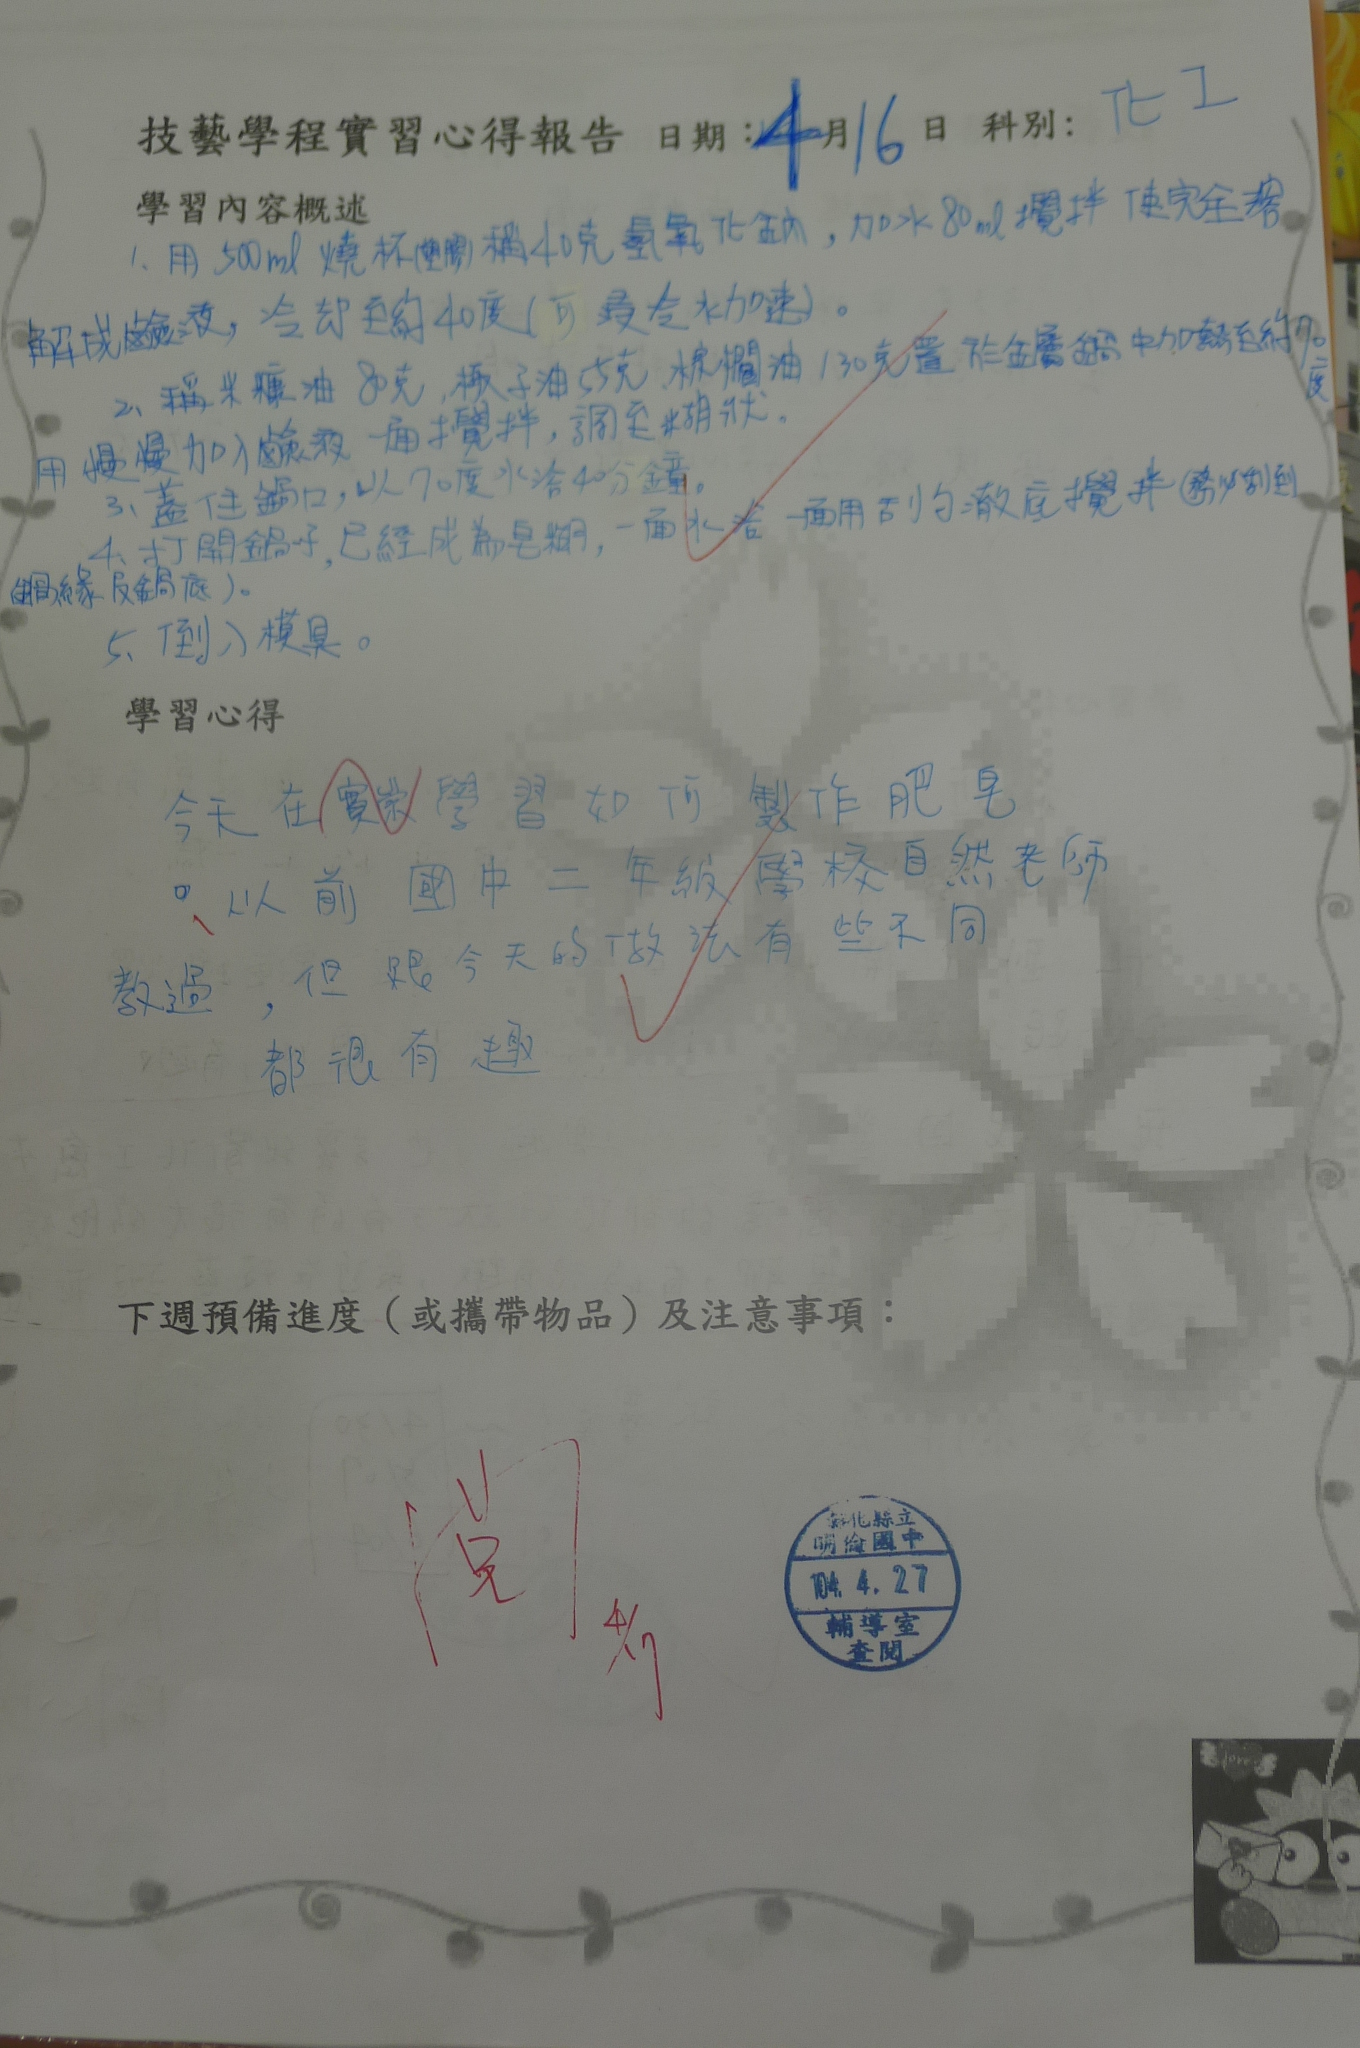 技藝學程實習心得報告 日期：4月16日 科別：化工
學習內容概述
1、用500ml燒杯(塑膠)稱40克氫氧化鈉，加水80ml攪拌使完全溶
解成鹼液，冷却至約40度(可 冷水加速)。
2、稱米糠油80克，椰子油55克，棕櫚油130克置於金屬鍋中加熱至約70度
用慢慢加入鹼液一面攪拌，調至糊狀。
3、蓋住鍋口，以70度水浴40分鐘。
4、打開鍋子，已經成為皂糊，一面水浴一面用刮勺澈底攪拌(務必刮到
鍋緣及鍋底)。
5、倒入模具。
學習心得
今天在實 學習如何製作肥皂
。以前國中二年級學校自然老師
教過，但跟今天的做法有些不同
都很有趣
下週預備進度（或攜帶物品）及注意事項：
閱
4/17
彰化縣立
明倫國中
104. 4. 27
輔導室
查閱
love